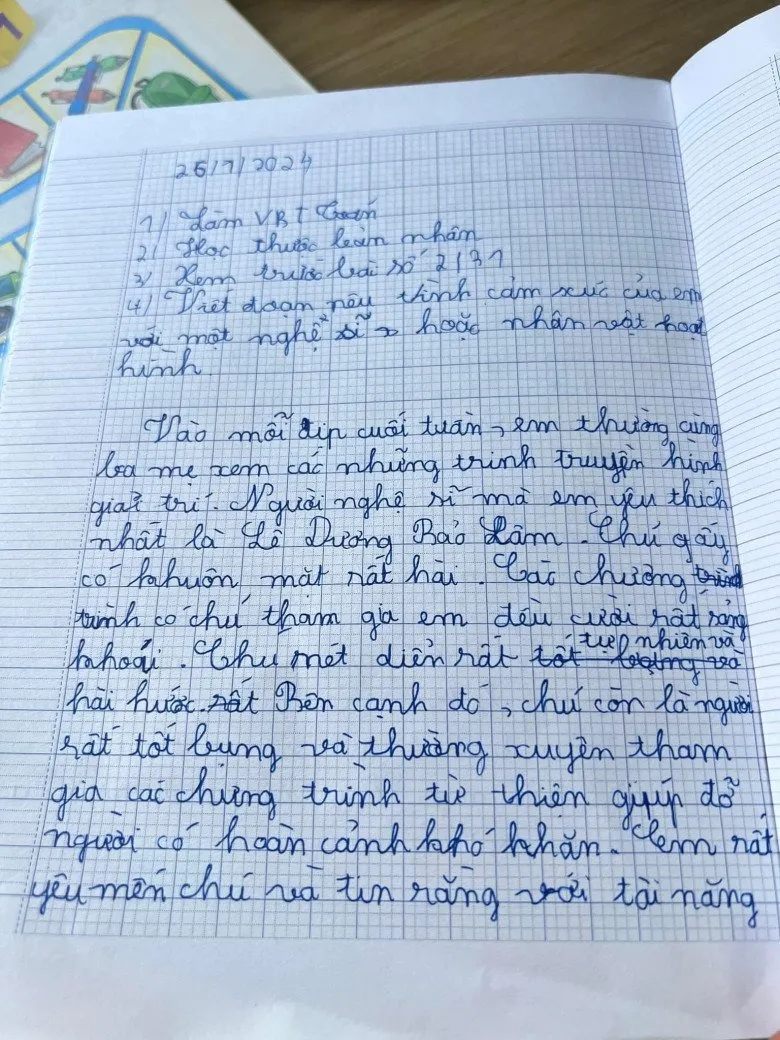 26/7/2024
1) Làm VBT Toán
2) Học thuộc lòng nhân
3) Xem trước bài số 2131
4) Viết đoạn nêu tình cảm xúc của em
với một nghệ sĩ hoặc nhân vật hoạt
hình.
Vào mỗi dịp cuối tuần, em thường cùng
ba mẹ xem các những trình truyền hình
giải trí. Người nghệ sĩ mà em yêu thích
nhất là Lê Dương Bảo Lâm. Chú gấy
có khuôn mặt rất hài. Các chương
trình có chú tham gia em đều cười rất sảng
khoái. Chu mét diễn rất tự nhiên và
hài hước. Bên cạnh đó, chú còn là người
rất tốt bụng và thường xuyên tham
gia các chừng trình từ thiện giúp đỡ
người có hoàn cảnh khó khăn. Em rất
yêu mến chú và tin rằng với tài năng